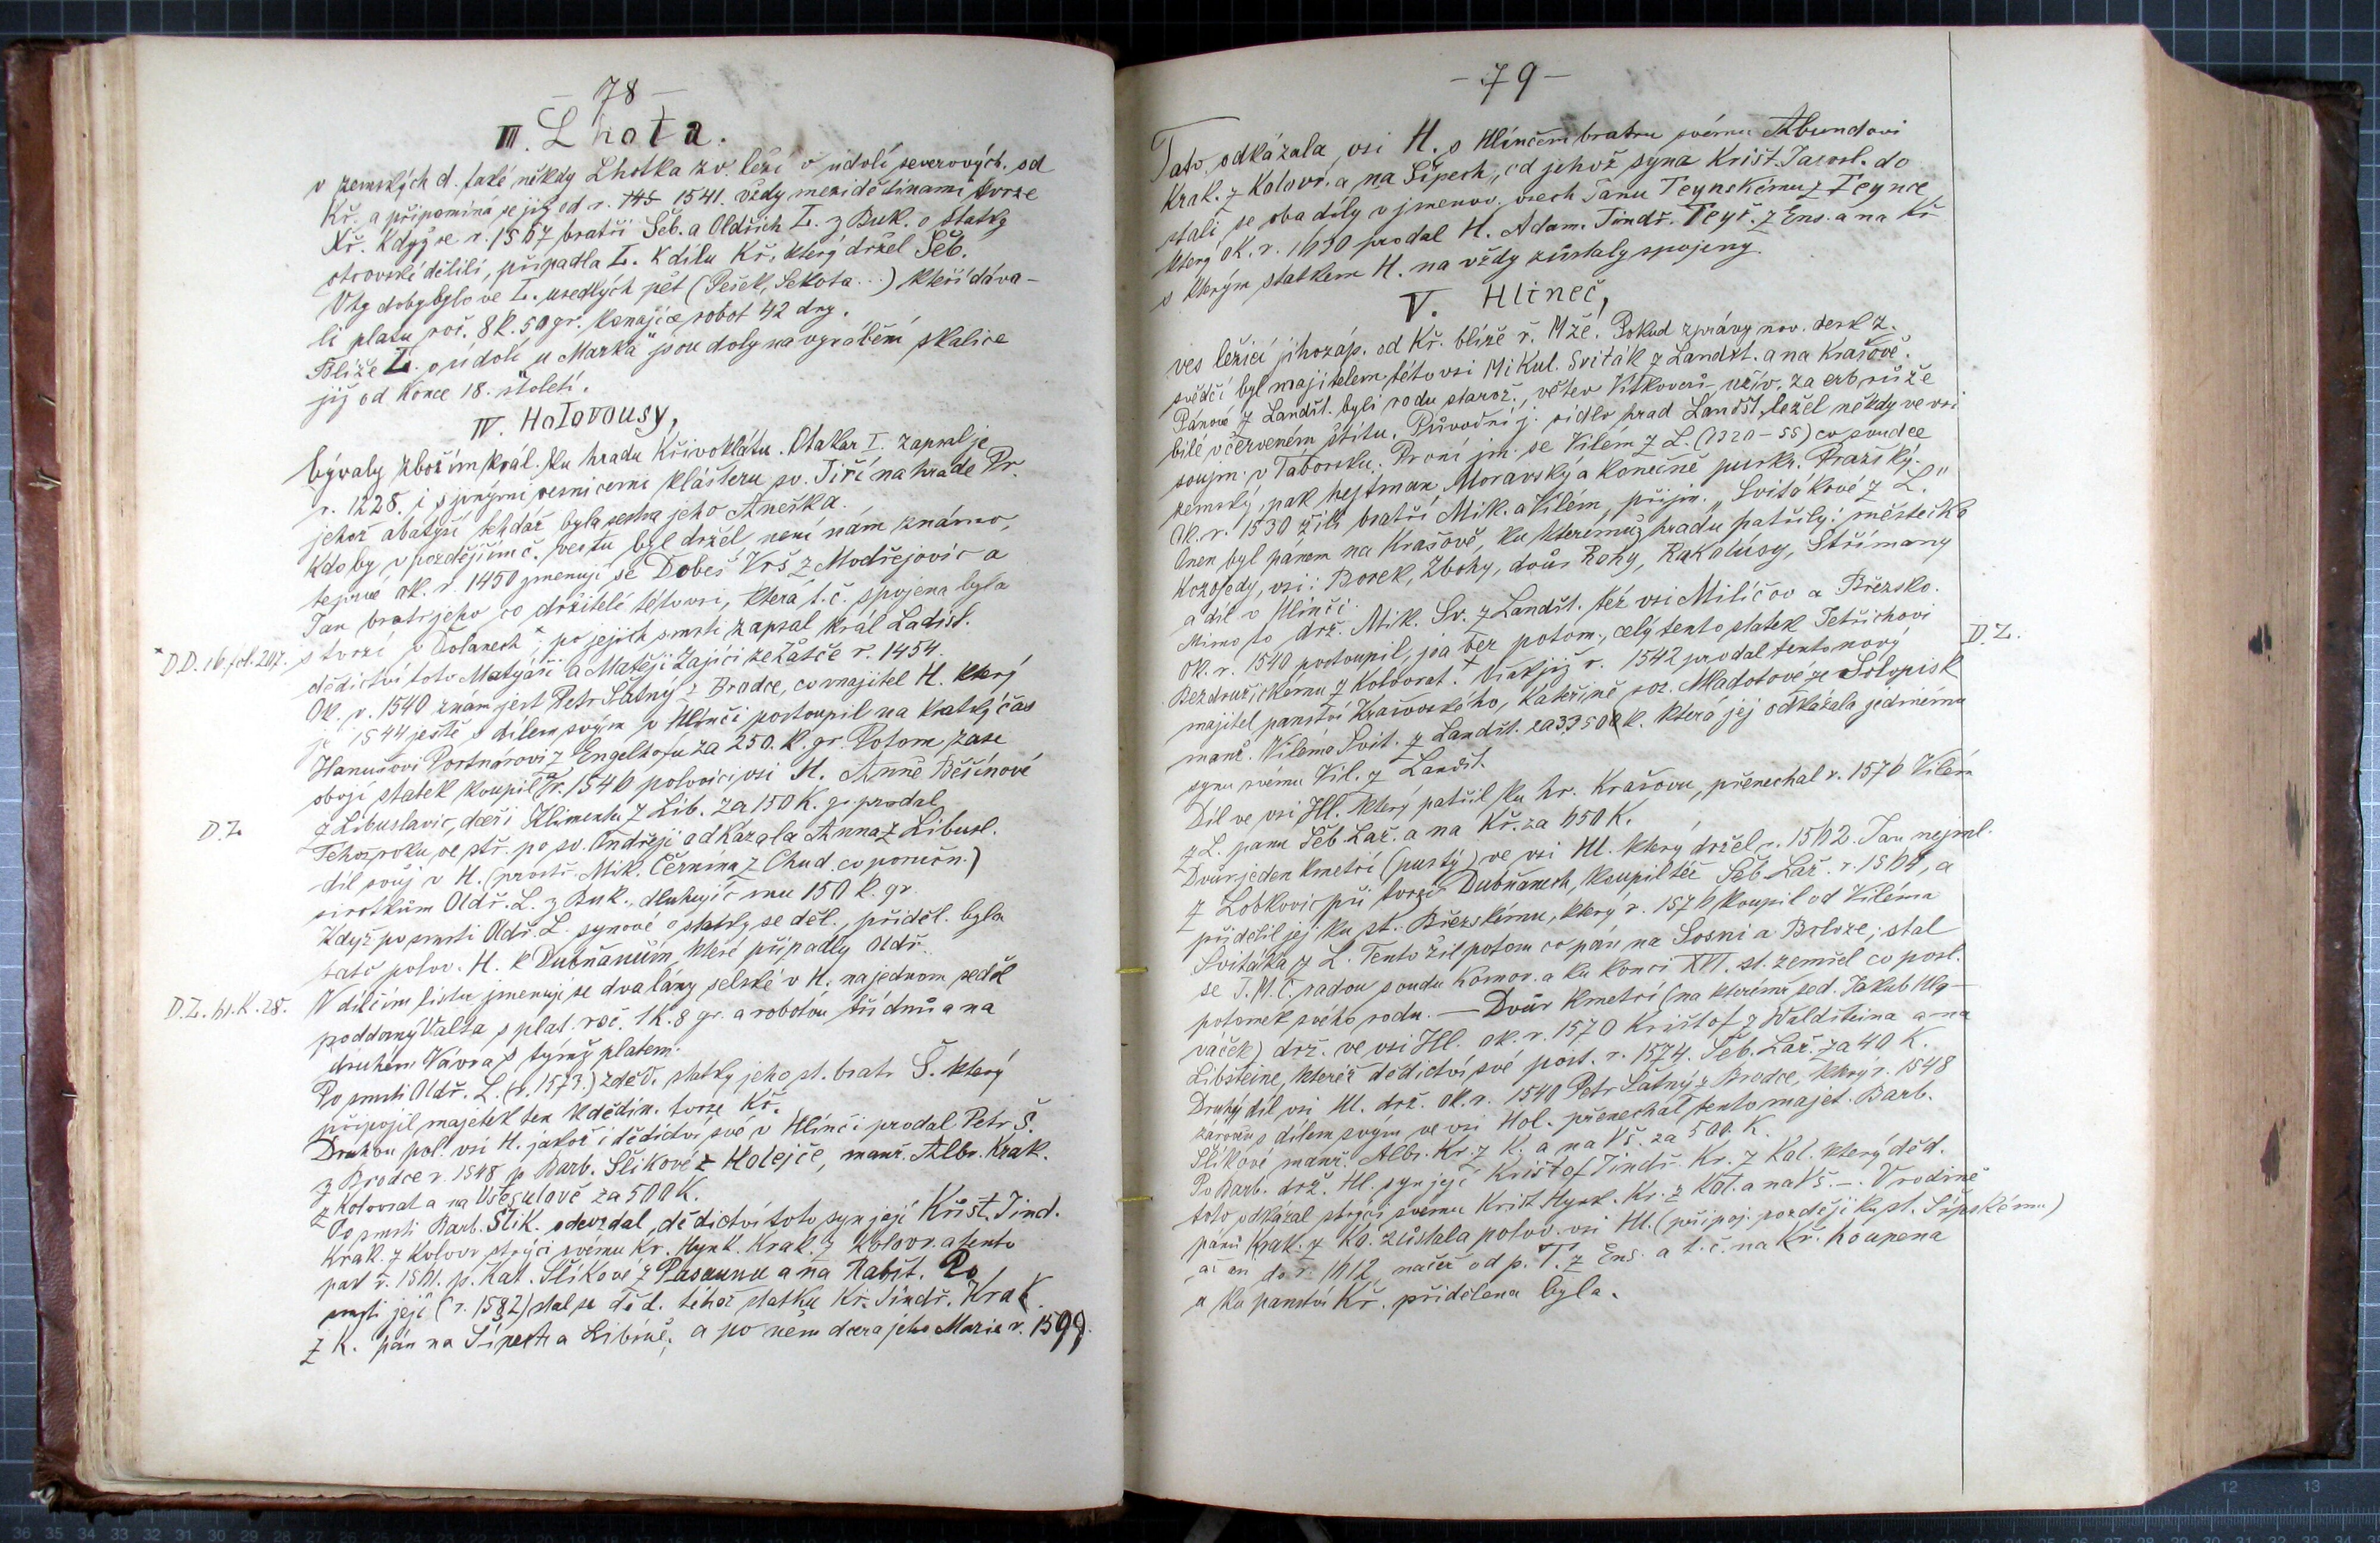 — 78 —
III. Lhota.
v zemských d. také někdy Lhotka zv. leží v údolí severových. od
Kř. a připomíná se již od r. 145 1541. vždy mezi dědinami tvrze
Kř. Když se r. 1567 bratři Šeb. a Oldřich L. z Buk. o statky
otcovské dělili, připadla L. k dílu Kř. který držel Šeb.
V ty doby bylo ve L. usedlých pět (Pešek, Sekota...) kteří dáva-
li platu roč. 8 k. 50 gr. konajíce robot 42 dny.
Blíže L. v údolí „u Marka" jsou doly na vyrábění skalice
již od konce 18. století.
IV. Holovousy,
bývaly zbožím král. ku hradu Křivoklátu. Otakar I. zapsal je
r. 1228. i s jinými vesnicemi klášteru sv. Jiří na hradě Pr.
jehož abatyší tehdáž byla sestra jeho Aneška.
Kdo by v pozdějším č. ves tu byl držel není nám známo,
teprvé ok. r. 1450 jmenují se Dobeš Vrš z Modřejovic a
Jan bratr jeho co držitelé této vsi, která t. č. spojena byla
* D.D. 16. fol. 207. s tvrzí v Dolanech*, po jejich smrti zapsal král Ladisl.
dědictví toto Matyáši a Matěji Zajíci ze Žatče r. 1454.
Ok. r. 1540 znám jest Petr Šatný z Brodce, co majitel H. který
je 1544 ještě s dílem svým v Hlinči postoupil na krátký čas
Hanušovi Portnárovi z Engelhofu za 250. k. gr. Potom zase
obojí statek koupil r. 1546 polovici vsi H. Anně Běšínové
D.Z. z Libuslavic, dceři Klimenta z Lib. za 150 K. gr. prodal
Téhož roku ve stř. po sv. Ondřeji odkázala Anna z Libusl.
díl svůj v H. (prostř. Mik. Černína z Chud. co poručn.)
sirotkům Oldř. L. z Buk., dluhujíc mu 150 k. gr.
Když po smrti Oldř. L. synové o statky se děl., příděl. byla
tato polov. H. k Dubňanům, které připadly Oldř.
D.Z. 61. K. 28. V dílčím listu jmenuje se dva lány selské v H. na jednom seděl
poddaný Valta s plat. roč. 1 K. 8 gr. a robotou tří dnů a na
druhém Vávra s týmž platem.
Po smrti Oldř. L. (r. 1573.) zděd. statky jeho st. bratr Š. který
připojil majetek ten k dědin. tvrze Kř.
Druhou pol. vsi H. jakož i dědictví své v Hlinči prodal Petr Š.
z Brodce r. 1548 p. Barb. Šlikové z Holejče, manž. Albr. Krak.
z Kolovrat a na Všesulově za 500 K.
Po smrti Barb. Šlik. odevzdal dědictví toto syn její Krišt. Jind.
Krak. z Kolovr. strýci svému Kr. Hynk. Krak. z Kolovr. a tento
pak r. 1561. p. Kat. Šlikové z Pasaunu a na Rabšt. Po
smrti její (r. 1582) stal se děd. téhož statku Kř. Jindř. Krak.
z K. pán na Šípech a Libíně, a po něm dcera jeho Marie r. 1599.
— 79 —
Tato odkázala vsi H. s Hlinčem bratru svému Abundovi
Krak. z Kolovr. a na Šípech, od jehož syna Krišt. Jarosl. do
stali se oba díly v jmenov. vsech Janu Teynskému z Teynce
který ok. r. 1630 prodal H. Adam. Jindř. Teyř. z Ens. a na Kř
s kterým statkem H. na vždy zůstaly spojeny.
V. Hlineč,
ves ležící jihozáp. od Kř. blíže ř. Mže. Pokud zprávy nov. desk z.
svědčí byl majitelem této vsi Mikul. Sviták z Landšt. a na Krašově.
Pánové z Landšt. byli rodu starož., větev Vítkovců užív. za erb růže
bílé v červeném štítu. Původní j. sídlo hrad Landšt. ležel někdy ve vsi
soujm. v Táborsku. První jm. se Vilém z L. (1320–55) co soudce
zemský, pak hejtman Moravský a konečně purkr. Pražský.
Ok. r. 1530 žili bratři Mik. a Vilém, příjm. „Svitákové z L."
Onen byl pánem na Krašově, ku kterémuž hradu patřily: městečko
Kozojedy, vsi: Borek, Zbohy, dvůr Rohy, Rakolúsy, Střímany
a díl v Hlinči.
Mimo to drž. Mik. Sv. z Landšt. též vsi Milíčov a Březsko.
Ok. r. 1540 postoupil, jsa bez potom., celý tento statek Jetřichovi
D.Z.
Bezdružickému z Kolovrat. Však již r. 1542 prodal tento nový
majitel panství Krašovského, Kateřině roz. Mladotové ze Solopisk
manž. Viléma Svit. z Landšt. za 3350 k. která jej odkázala jedinému
synu svému Vil. z Landšt.
Díl ve vsi Hl. který patřil ku hr. Krašovu, přenechal r. 1576 Vilém
z L. panu Šeb. Laž. a na Kř. za 650 K.
Dvůr jeden kmetcí (pustý) ve vsi Hl. který držel r. 1562. Jan nejml.
z Lobkovic při tvrzi Dubňanech, koupil též Šeb. Laž. r. 1564, a
přidělil jej ku st. Březskému, který r. 1576 koupil od Viléma
Svitáka z L. Tento žil potom co pán na Sosni a Brloze; stal
se J. M. C. radou soudu komor. a ku konci XVI. st. zemřel co posl.
potomek svého rodu. — Dvůr kmetcí (na kterémž sed. Jakub Hla-
váček) drž. ve vsi Hl. ok. r. 1570 Krištof z Waldšteina a na
Libšteině, kteréž dědictví své post. r. 1574. Šeb. Laž. za 40 K.
Druhý díl vsi Hl. drž. ok. r. 1540 Petr Šatný z Brodce, který r. 1548
zároveň s dílem svým ve vsi Hol. přenechal tento majet. Barb.
Šlikové manž. Albr. Kr. z K. a na Vš. za 500 K.
Po Barb. drž. Hl. syn její Krištof Jindř. Kr. z Kol. který děd.
toto odkázal strýci svému Krišt. Hynk. Kr. z Kol. a na Vš. —. V rodině
pánů Krak. z Ko. zůstala polov. vsi Hl. (připoj. později ku st. Šípskému)
až do r. 1612, načež od p. T. z Ens. a t. č. na Kř. koupena
a ku panství Kř. přidělena byla.